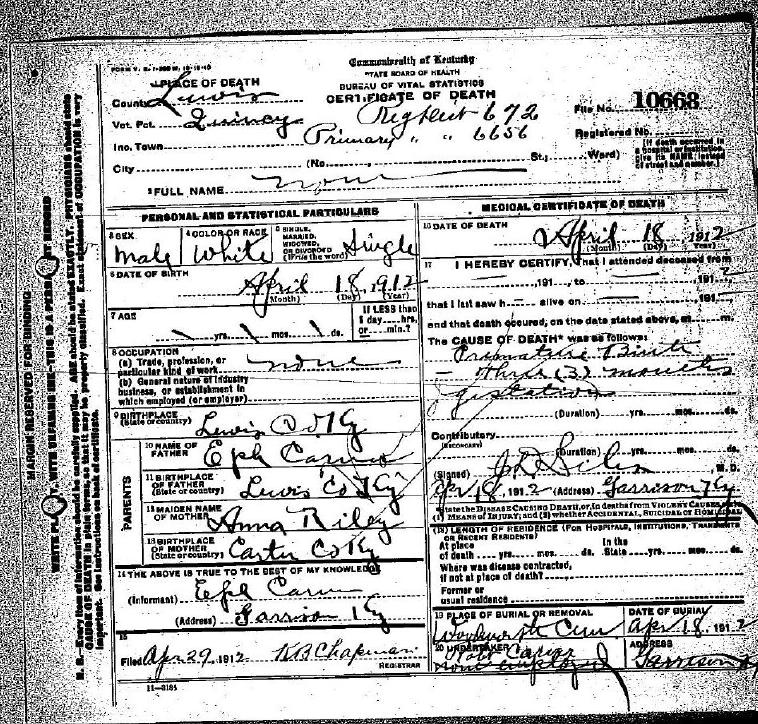 Commonwealth of Kentucky
STATE BOARD OF HEALTH
BUREAU OF VITAL STATISTICS
CERTIFICATE OF DEATH
PLACE OF DEATH
County Lewis
Vot. Pct. Quincy
Inc. Town
City (No. St.; Ward)
Reg Dist 672
Primary " " 6656
File No. 10668
Registered No.
(If death occurred in a hospital or institution give its NAME instead of street and number.)
2 FULL NAME none
PERSONAL AND STATISTICAL PARTICULARS
3 SEX Male
4 COLOR OR RACE White
5 SINGLE, MARRIED, WIDOWED, OR DIVORCED (Write the word) Single
6 DATE OF BIRTH April 18, 1912
(Month) (Day) (Year)
7 AGE yrs. mos. ds.
If LESS than 1 day hrs. or min.?
8 OCCUPATION
(a) Trade, profession, or particular kind of work none
(b) General nature of industry business, or establishment in which employed (or employer)
9 BIRTHPLACE
(State or country) Lewis Co Ky
PARENTS
10 NAME OF FATHER Eph Carver
11 BIRTHPLACE OF FATHER
(State or country) Lewis Co Ky
12 MAIDEN NAME OF MOTHER Anna Riley
13 BIRTHPLACE OF MOTHER
(State or country) Carter Co Ky
14 THE ABOVE IS TRUE TO THE BEST OF MY KNOWLEDGE
(Informant) Eph Carver
(Address) Garrison Ky
15
Filed Apr 29, 1912 KB Chapman
REGISTRAR
11-3184
MEDICAL CERTIFICATE OF DEATH
16 DATE OF DEATH April 18 1912
(Month) (Day) (Year)
17 I HEREBY CERTIFY, That I attended deceased from
, 191 , to , 191
that I last saw h alive on , 191
and that death occured, on the date stated above, at m.
The CAUSE OF DEATH* was as follows:
Premature Birth
- three (3) months
gestation
(Duration) yrs. mos. ds.
Contributory
(SECONDARY)
(Duration) yrs. mos. ds.
(Signed) M.D.
Apr 18, 1912 (Address) Garrison Ky
*State the DISEASE CAUSING DEATH, or, in deaths from VIOLENT CAUSES, state (1) MEANS OF INJURY; and (2) whether ACCIDENTAL, SUICIDAL OR HOMICIDAL
(18) LENGTH OF RESIDENCE (FOR HOSPITALS, INSTITUTIONS, TRANSIENTS OR RECENT RESIDENTS)
At place of death yrs. mos. ds. In the State yrs. mos. ds.
Where was disease contracted, if not at place of death?
Former or usual residence
19 PLACE OF BURIAL OR REMOVAL
DATE OF BURIAL
Apr 18, 1912
20 UNDERTAKER
none employed
ADDRESS
Garrison
MARGIN RESERVED FOR BINDING
N. B.—Every item of information should be carefully supplied. AGE should be stated EXACTLY. PHYSICIANS should state
CAUSE OF DEATH in plain terms, so that it may be properly classified. Exact statement of OCCUPATION is very
important. See instructions on back of certificate.